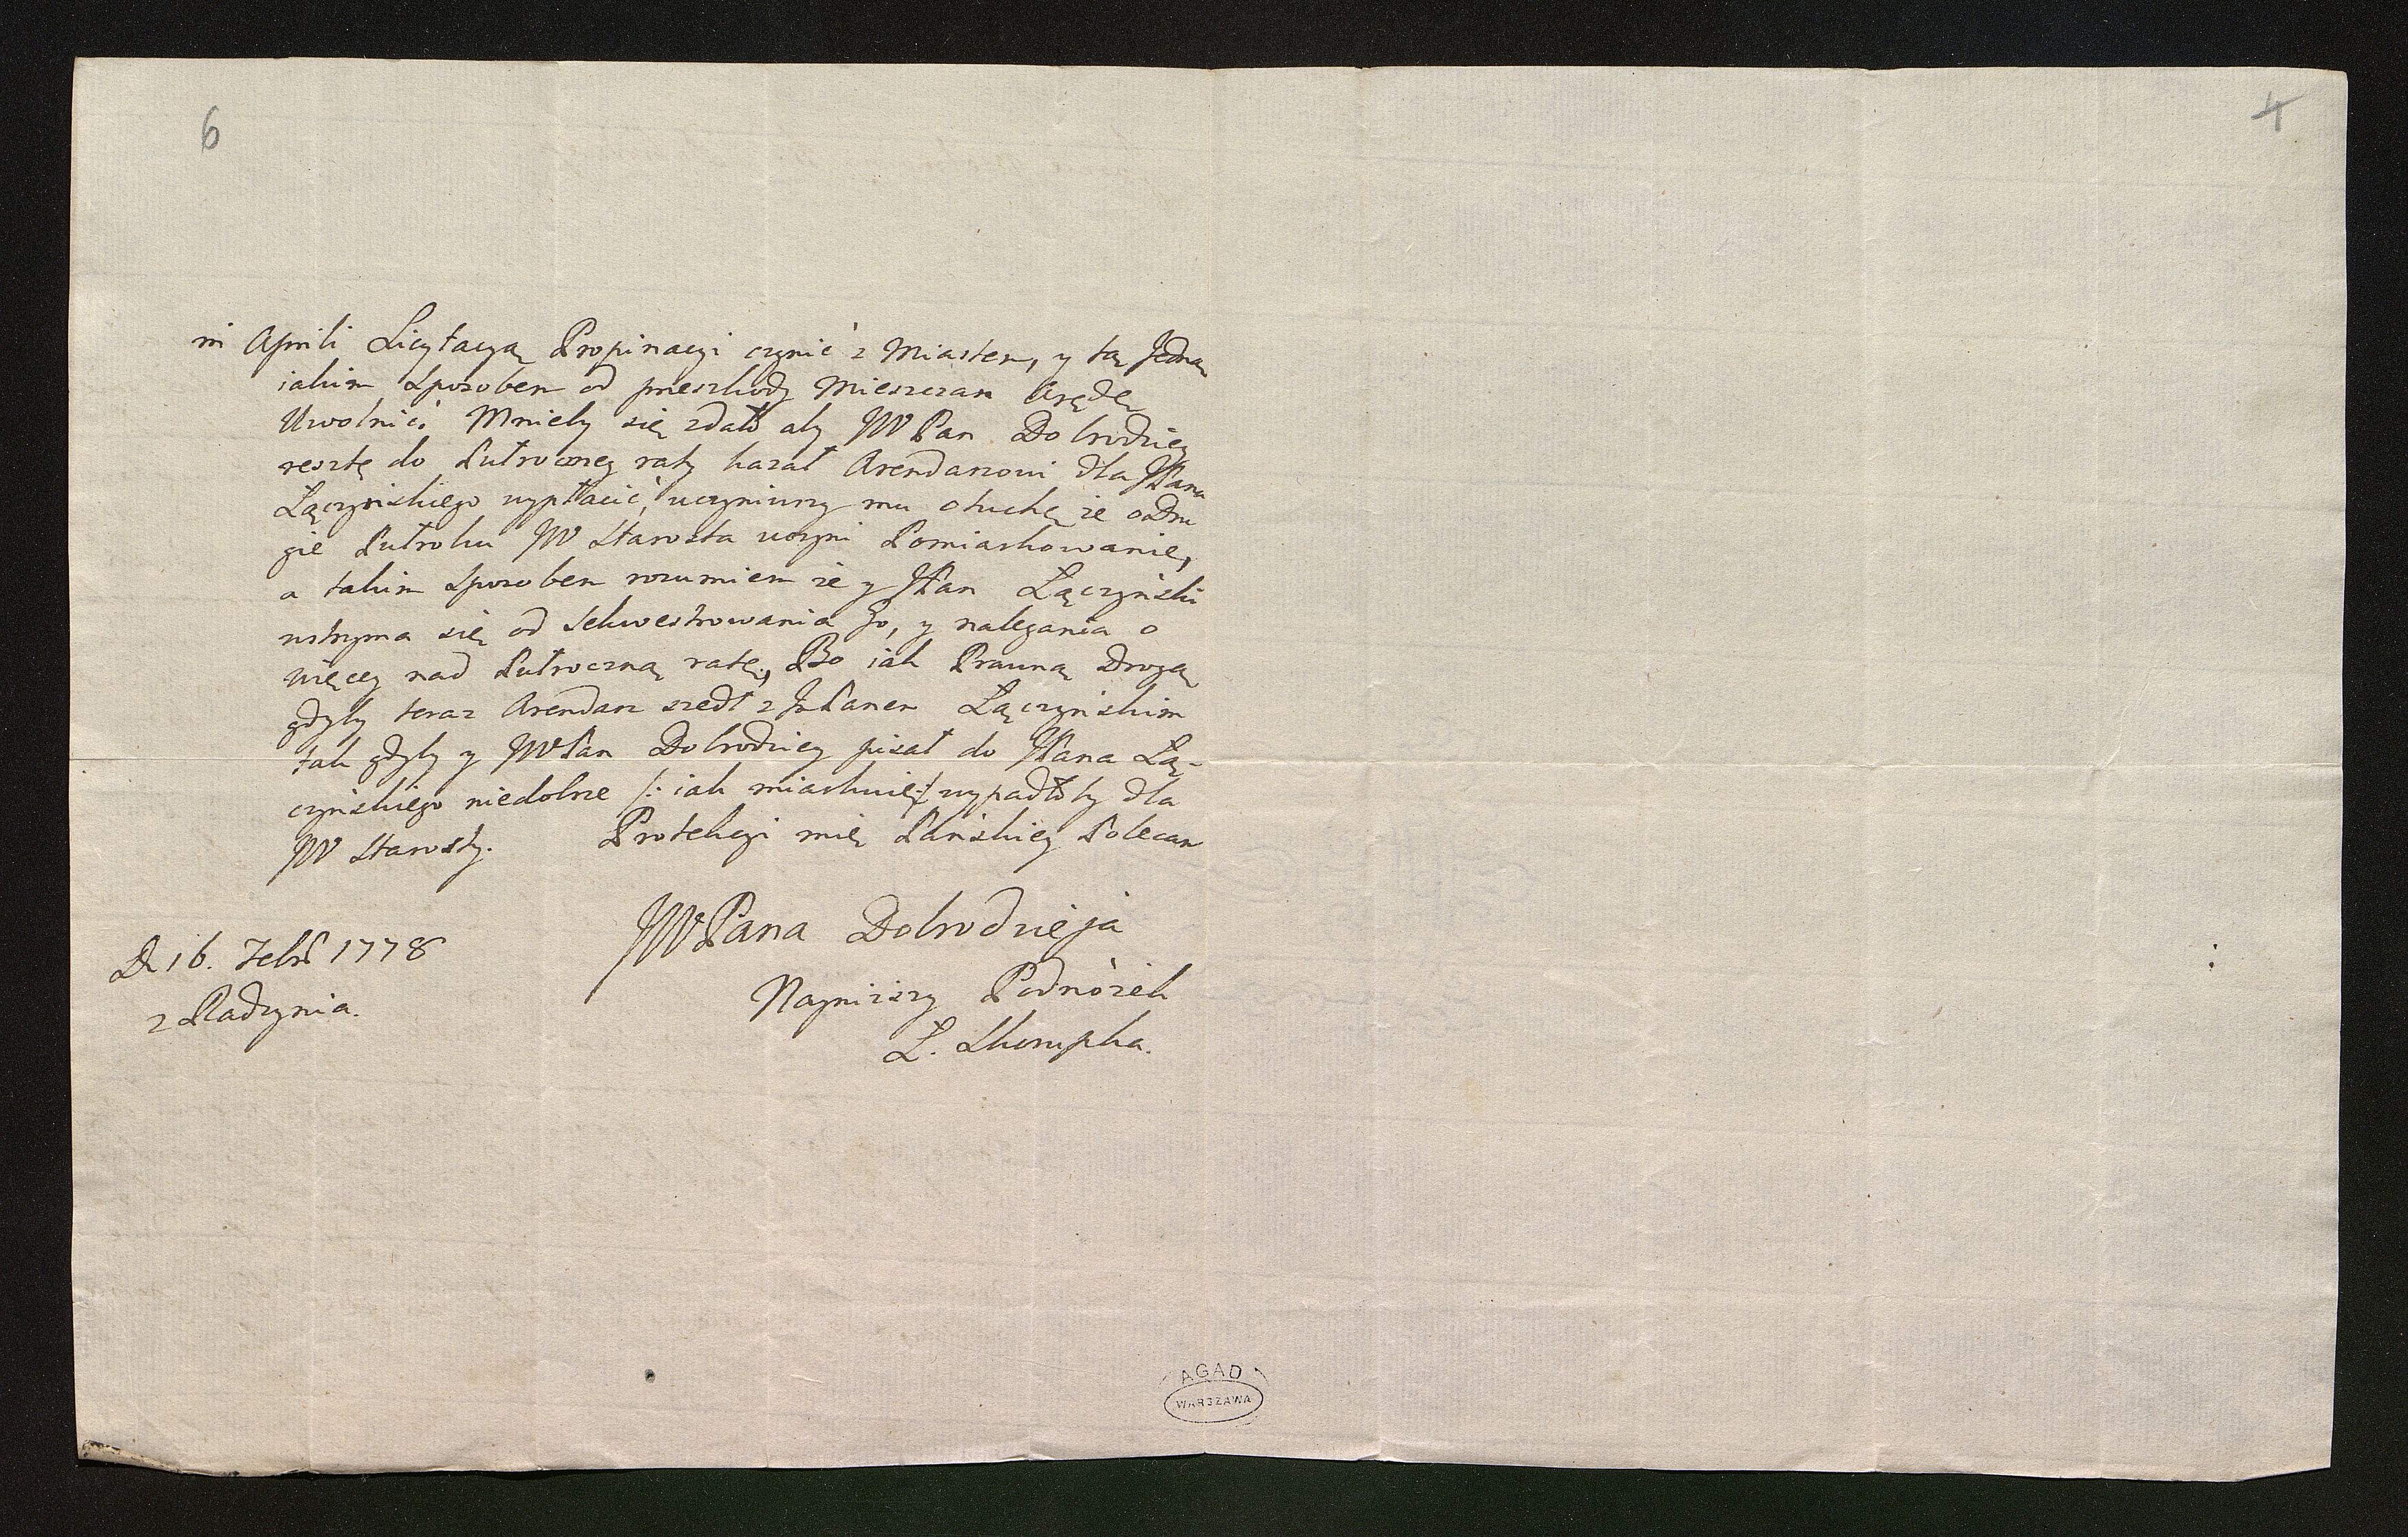 6
4
in Aprili Licytacyą Propinacyi czynić z Miastem, y tą Jedną
iakim sposobem od przeszkody Mieszczan Arędę
Uwolnić. Mnieby się zdało aby JWPan Dobrodziey
resztę do Pułroczney raty kazał Arendarzowi dla JPana
Łączyńskiego wypłacić, uczyniwszy mu otuchę że o Dru
gie Pułroku JW Starosta uczyni Pomiarkowanie,
a takim sposobem rozumiem że y JPan Łączyński
wstrzyma się od sekwestrowania Go, y nalegania o
więcey nad Pułroczną ratę, Bo iak Prawną Drogą
gdyby teraz Arendarz szedł z JPanem Łączyńskim
tak gdyby y JWPan Dobrodziey pisał do JPana Łą-
czyńskiego niedobrze /: iak miarkuię :/ wypadłoby dla
JW Starosty. Protekcyi mię Pańskiey Polecam
JWPana Dobrodzieja
D 16. Febr 1778
Nayniższy Podnóżek
z Radzynia.
L. Skorupka.
AGAD
WARSZAWA